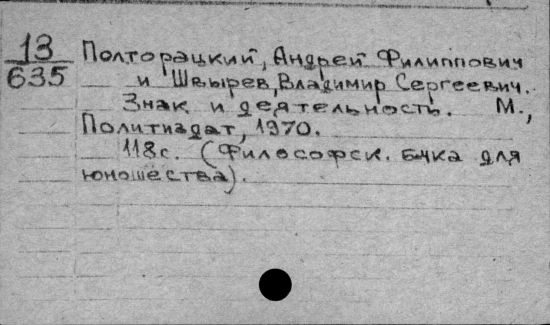 13
635
Полторацкий, Андрей Филиппович
и Швырев, Владимир Сергеевич.
Знак и деятельность. М.,
Политиздат, 1970.
118с. (Философск. б-чка для
юношества).